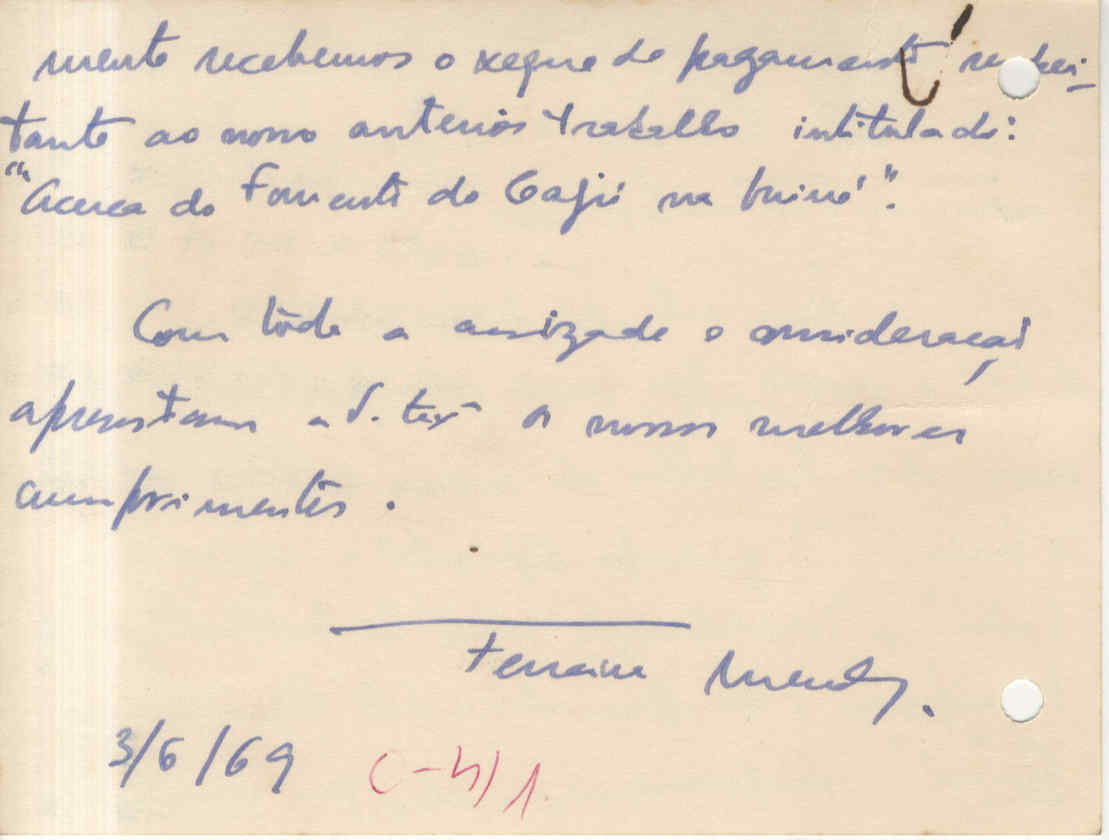 mente recebemos o xeque do pagamento respei-
tante ao nosso anterior trabalho intitulado:
"Acerca do Fomento do Cajú na Guiné".
Com tôda a amizade e consideração
apresentamos a V. Exª os nossos melhores
cumprimentos.
Ferreira Mendes.
3/6/69 C-4/1